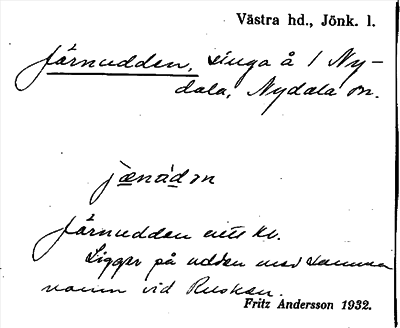 Västra hd., Jönk. l.
Järnudden, Linga å / Ny-
dala, Nydala sn.
jænúdən
Järnudden nitt kv.
Ligger på udden med samma
namn vid Rusken.
Fritz Andersson 1932.